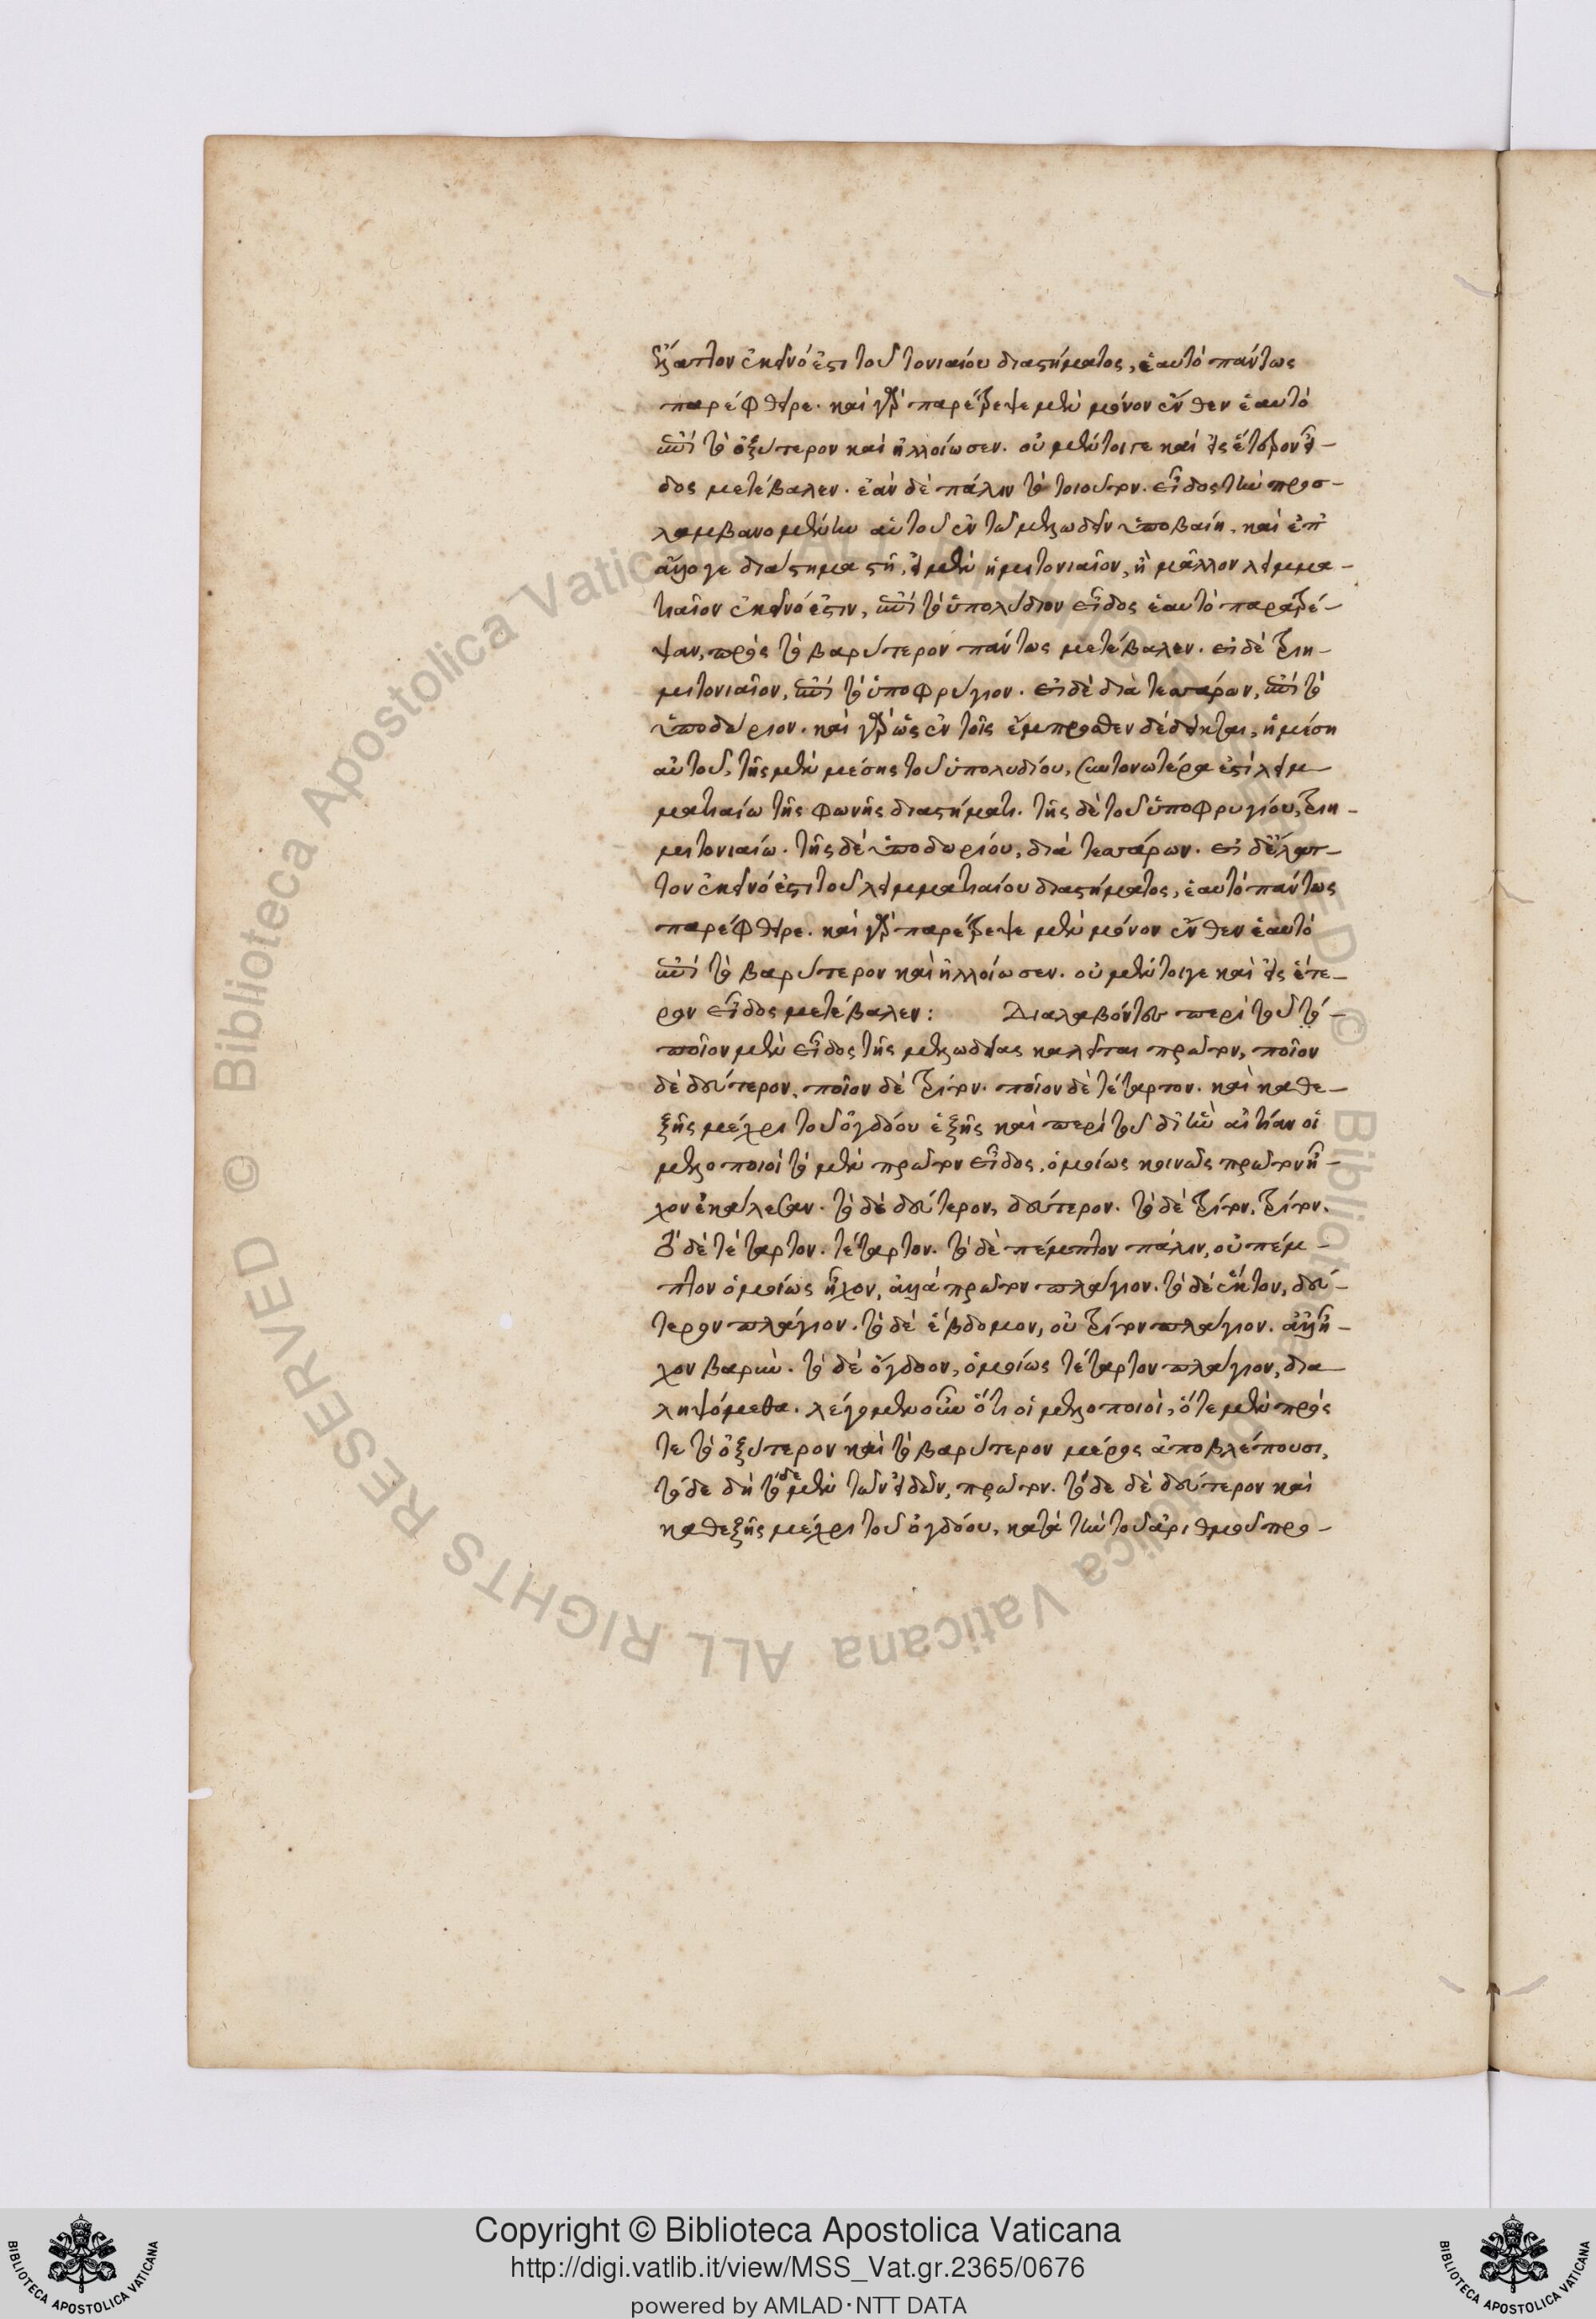 δ' ἔλαττον ἐκεῖνό ἐστι τοῦ τονιαίου διαστήματος, ἑαυτὸ πάντως
παρέφθειρε. καὶ γὰρ παρέτρεψε μὲν μόνον ἔνθεν ἑαυτὸ
ἐπὶ τὸ ὀξύτερον καὶ ἠλλοίωσεν. οὐ μέντοιγε καὶ εἰς ἕτερον εἶ-
δος μετέβαλεν. ἐὰν δὲ πάλιν τὸ τοιοῦτον εἶδος τὴν προσ-
λαμβανομένην αὐτοῦ ἐν τῷ μελωδεῖν ὑποβαίη, καὶ ἐπ'
ἄλλογε διάστημα στῇ, εἰ μὲν ἡμιτονιαῖον, ἢ μᾶλλον λειμμα-
τιαῖον ἐκεῖνό ἐστιν, ἐπὶ τὸ ὑπολύδιον εἶδος ἑαυτὸ παρατρέ-
ψαν, πρὸς τὸ βαρύτερον πάντως μετέβαλεν. εἰ δὲ τριη-
μιτονιαῖον, ἐπὶ τὸ ὑποφρύγιον. εἰ δὲ διὰ τεσσάρων, ἐπὶ τὸ
ὑποδώριον. καὶ γὰρ ὡς ἐν τοῖς ἔμπροσθεν δέδεικται, ἡ μέση
αὐτοῦ, τῆς μὲν μέσης τοῦ ὑπολυδίου, συντονωτέρα ἐστὶ λειμ-
ματιαίῳ τῆς φωνῆς διαστήματι. τῆς δὲ τοῦ ὑποφρυγίου, τριη-
μιτονιαίῳ. τῆς δὲ ὑποδωρίου, διὰ τεσσάρων. εἰ δ' ἔλατ-
τον ἐκεῖνό ἐστι τοῦ λειμματιαίου διαστήματος, ἑαυτὸ πάντως
παρέφθειρε. καὶ γὰρ παρέτρεψε μὲν μόνον ἔνθεν ἑαυτὸ
ἐπὶ τὸ βαρύτερον καὶ ἠλλοίωσεν. οὐ μέντοιγε καὶ εἰς ἕτε-
ρον εἶδος μετέβαλεν: Διαλαβόντες περὶ τοῦ τό-
ποῖον μὲν εἶδος τῆς μελωδίας καλεῖται πρῶτον, ποῖον
δὲ δεύτερον, ποῖον δὲ τρίτον. ποῖον δὲ τέταρτον. καὶ καθε-
ξῆς μέχρι τοῦ ὀγδόου ἑξῆς καὶ περὶ τοῦ δι' ἣν αἰτίαν οἱ
μελοποιοὶ τὸ μὲν πρῶτον εἶδος, ὁμοίως κοινῶς πρῶτον ἦ-
χον ἐκάλεσαν. τὸ δὲ δεύτερον, δεύτερον. τὸ δὲ τρίτον, τρίτον.
τὸ δὲ τέταρτον. τέταρτον. τὸ δὲ πέμπτον πάλιν, οὐ πέμ-
πτον ὁμοίως ἦχον, ἀλλὰ πρῶτον πλάγιον. τὸ δὲ ἕκτον, δεύ-
τερον πλάγιον. τὸ δὲ ἕβδομον, οὐ τρίτον πλάγιον. ἀλλ' ἦ-
χον βαρὺν. τὸ δὲ ὄγδοον, ὁμοίως τέταρτον πλάγιον, δια
ληψόμεθα. λέγομεν οὖν ὅτι οἱ μελοποιοὶ, ὅτε μὲν πρός
τε τὸ ὀξύτερον καὶ τὸ βαρύτερον μέρος ἀποβλέπουσι,
τόδε δὴ τόδε μὲν τῶν εἰδῶν, πρῶτον. τόδε δὲ δεύτερον καὶ
καθεξῆς μέχρι τοῦ ὀγδόου, κατὰ τὴν τοῦ ἀριθμοῦ προ-
Copyright © Biblioteca Apostolica Vaticana
http://digi.vatlib.it/view/MSS_Vat.gr.2365/0676
powered by AMLAD·NTT DATA
BIBLIOTECA APOSTOLICA VATICANA
BIBLIOTECA APOSTOLICA VATICANA
© Biblioteca Apostolica Vaticana ALL RIGHTS RESERVED
© Biblioteca Apostolica Vaticana ALL RIGHTS RESERVED